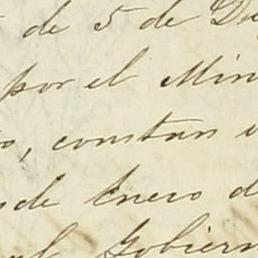 de 5 de Di
por el Min
o, constan
de Enero d
Gobiern